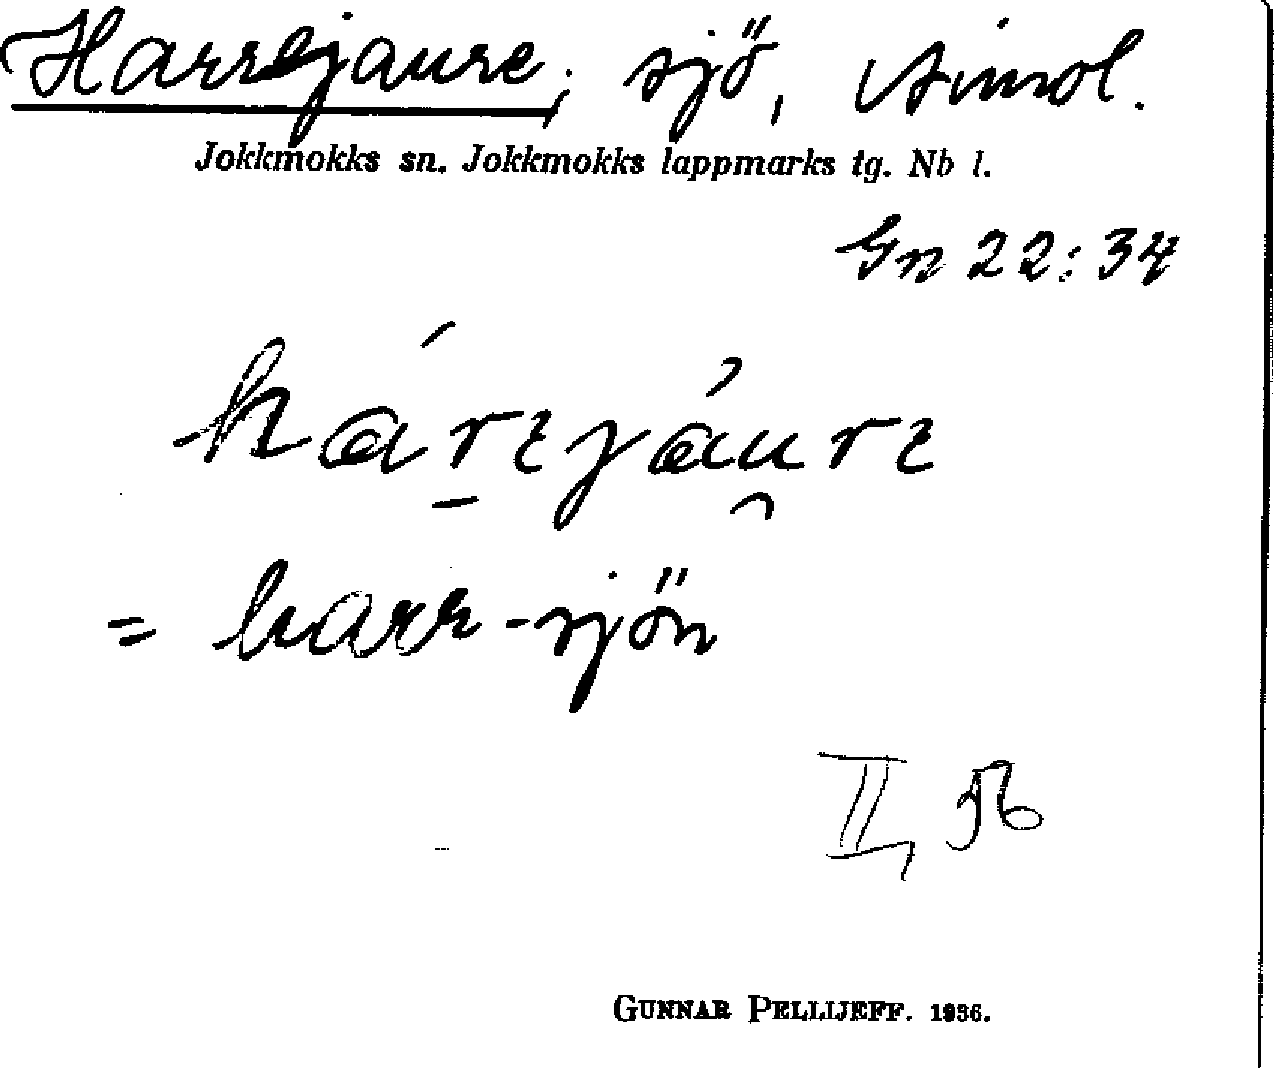 Harrejaure, sjö,
Jokkmokks sn. Jokkmokks lappmarks tg. Nb l.
Gn 22:34
= harr-sjön
II,
GUNNAR PELLIJEFF. 1936.